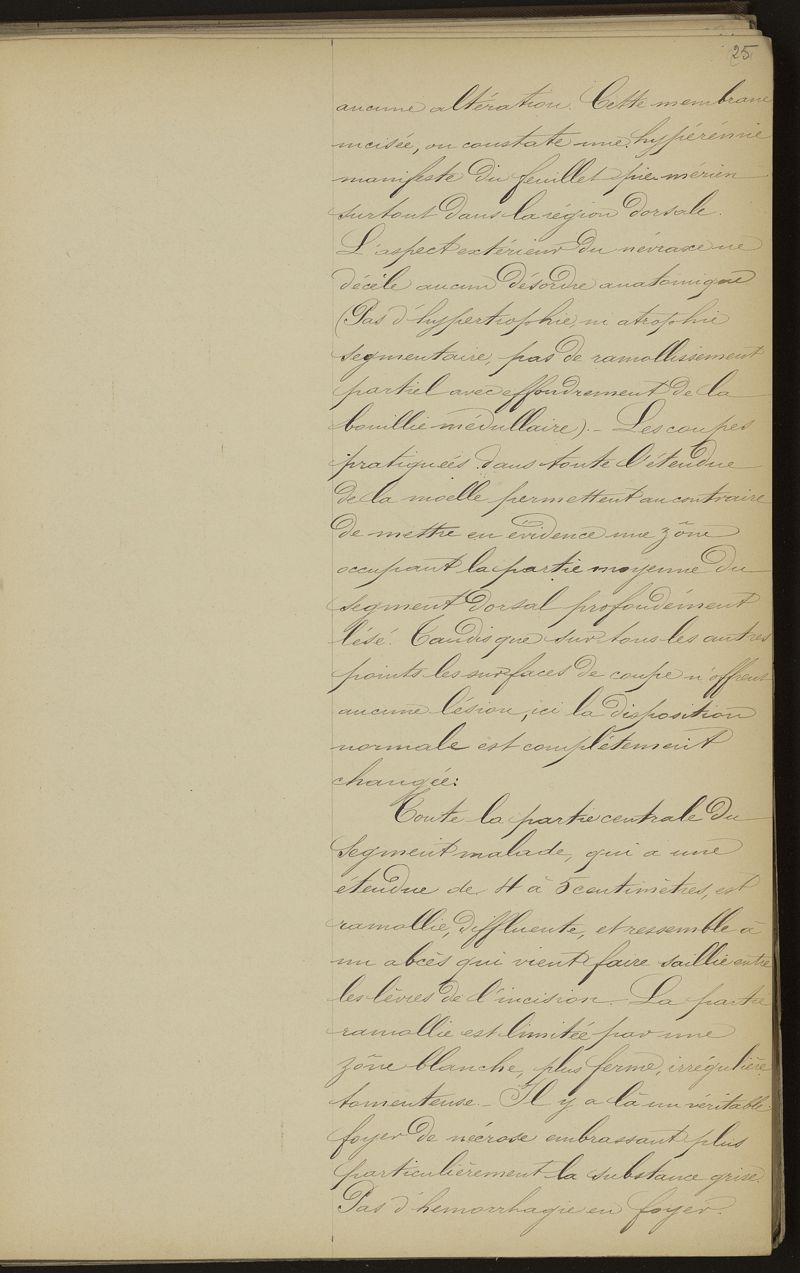 25
aucune altération. Cette membrane
incisée, on constate une hypérémie
manifeste du feuillet pie-mérien
surtout dans la région dorsale.
L'aspect extérieur du névraxe ne
décèle aucun désordre anatomique
(Pas d'hypertrophie, ni atrophie
segmentaire, pas de ramollissement
partiel avec effondrement de la
bouillie médullaire). - Les coupes
pratiqueés dans toute l'étendue
de la moelle permettent au contraire
de mettre en évidence une zône
occupant la partie moyenne du
segment dorsal profondément
lésé. Tandis que sur tous les autres
points les surfaces de coupe n'offrent
aucune lésion, ici la disposition
normale est complétement
changée:
Toute la partie centrale du
segment malade, qui a une
étendue de 4 à 5 centimètres, est
ramollie, diffluente, et ressemble à
un abcès qui vient faire saillie entre
les lèvres de l'incision. - La partie
ramollie est limitée par une
zône blanche, plus ferme, irrégulière,
tomenteuse. - Il y a là un véritable
foyer de nécrose embrassant plus
particulièrement la substance grise.
Pas d'hemorrhagie en foyer.